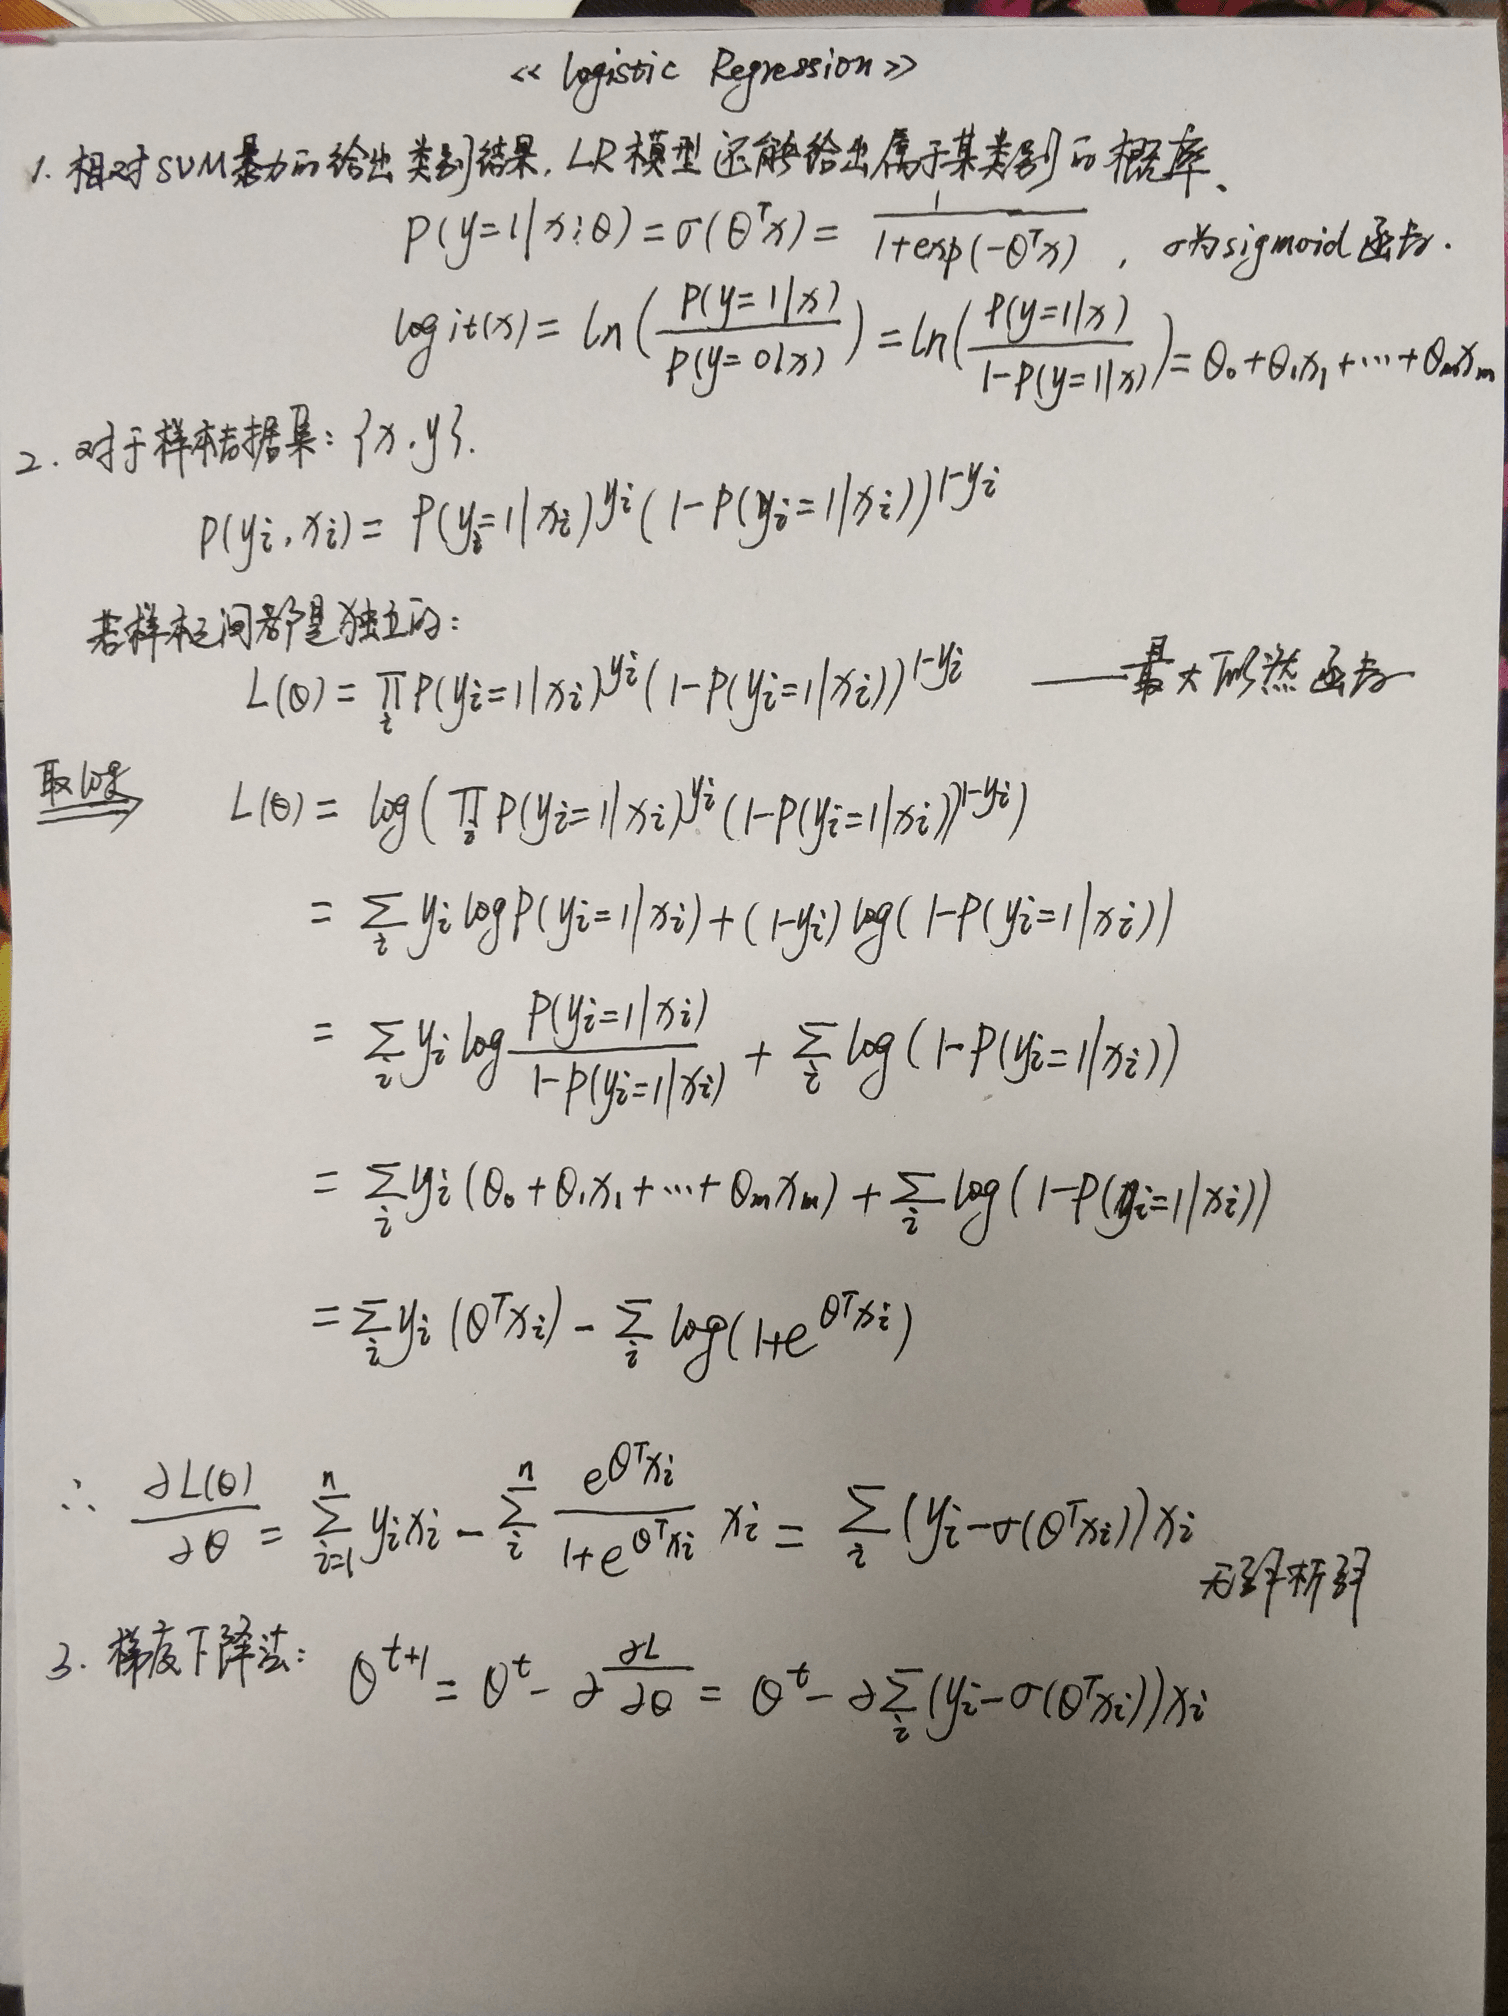 << Logistic Regression >>
1. 相对SVM暴力的给出类别结果, LR模型还能给出属于某类别的概率、
P(y=1|x;θ) = σ(θᵀx) = 1/(1+exp(-θᵀx)) , σ为sigmoid函数.
logit(x) = ln(P(y=1|x)/P(y=0|x)) = ln(P(y=1|x)/(1-P(y=1|x))) = θ₀+θ₁x₁+…+θₘxₘ
2. 对于样本数据集: {x, y}.
P(yᵢ, xᵢ) = P(yᵢ=1|xᵢ)^yᵢ (1-P(yᵢ=1|xᵢ))^(1-yᵢ)
若样本之间都是独立的:
L(θ) = ∏ᵢ P(yᵢ=1|xᵢ)^yᵢ (1-P(yᵢ=1|xᵢ))^(1-yᵢ) ——最大似然函数
取log ⇒ L(θ) = log(∏ᵢ P(yᵢ=1|xᵢ)^yᵢ (1-P(yᵢ=1|xᵢ))^(1-yᵢ))
= ∑ᵢ yᵢ log P(yᵢ=1|xᵢ) + (1-yᵢ) log(1-P(yᵢ=1|xᵢ))
= ∑ᵢ yᵢ log P(yᵢ=1|xᵢ)/(1-P(yᵢ=1|xᵢ)) + ∑ᵢ log(1-P(yᵢ=1|xᵢ))
= ∑ᵢ yᵢ(θ₀+θ₁x₁+…+θₘxₘ) + ∑ᵢ log(1-P(yᵢ=1|xᵢ))
= ∑ᵢ yᵢ(θᵀxᵢ) - ∑ᵢ log(1+e^(θᵀxᵢ))
∴ ∂L(θ)/∂θ = ∑ᵢ₌₁ⁿ yᵢxᵢ - ∑ᵢⁿ e^(θᵀxᵢ)/(1+e^(θᵀxᵢ)) xᵢ = ∑ᵢ (yᵢ-σ(θᵀxᵢ))xᵢ
无解析解
3. 梯度下降法: θ^(t+1) = θ^t - α ∂L/∂θ = θ^t - α∑ᵢ(yᵢ-σ(θᵀxᵢ))xᵢ